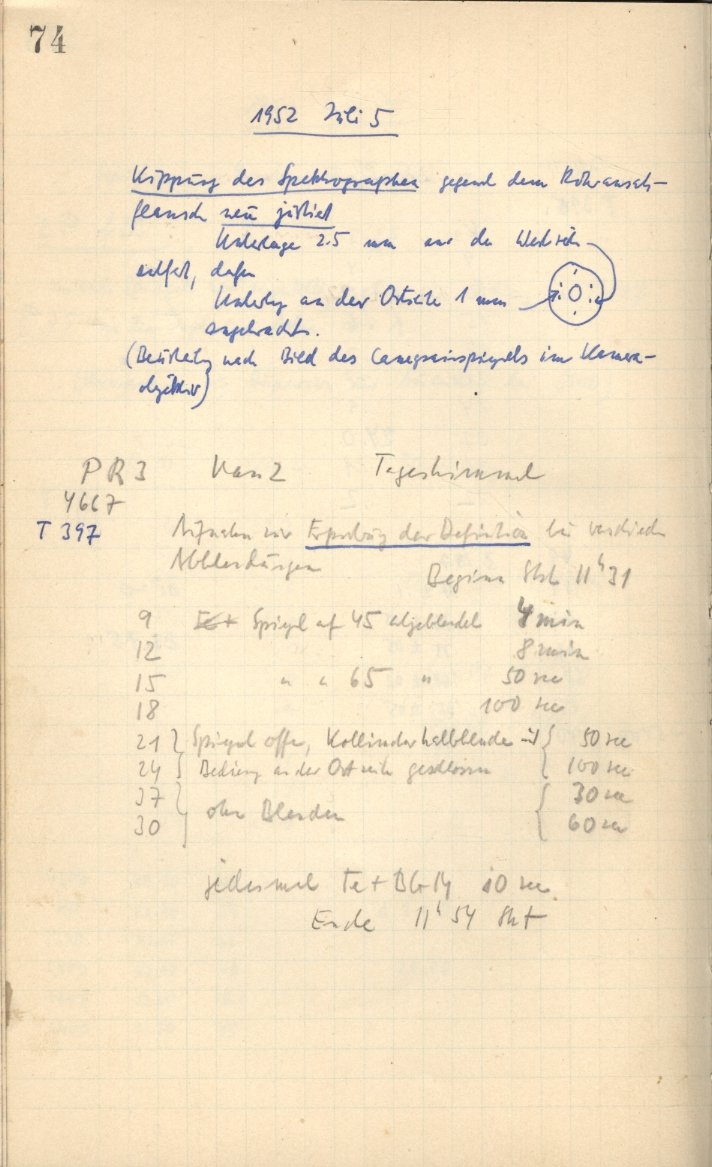 74
1952 Juli 5
Kippung des Spektrographen gegen dem Rohransatz-
flansch neu justiert
Unterlage 2.5 mm an der Westseite
entfernt, dafür
Unterlage an der Ostseite 1 mm
angebracht.
(Beurteilung nach Bild des Cassegrainspiegels im Kamera-
objektiv)
PR3 Kam 2 Tageshimmel
4667
T 397
Aufnahmen zur Erprobung der Definition bei verschiedenen
Abblendungen
Beginn 11h 31
9 Spiegel auf 45 abgeblendet 4 min
12 8 min
15 " " 65 " 50 sec
18 100 sec
21 Spiegel offen, Kollimatorhalbblende 50 sec
24 an der Ostseite geschlossen 100 sec
37 ohne Blenden 30 sec
30 60 sec
jedesmal 10 sec
Ende 11h 54